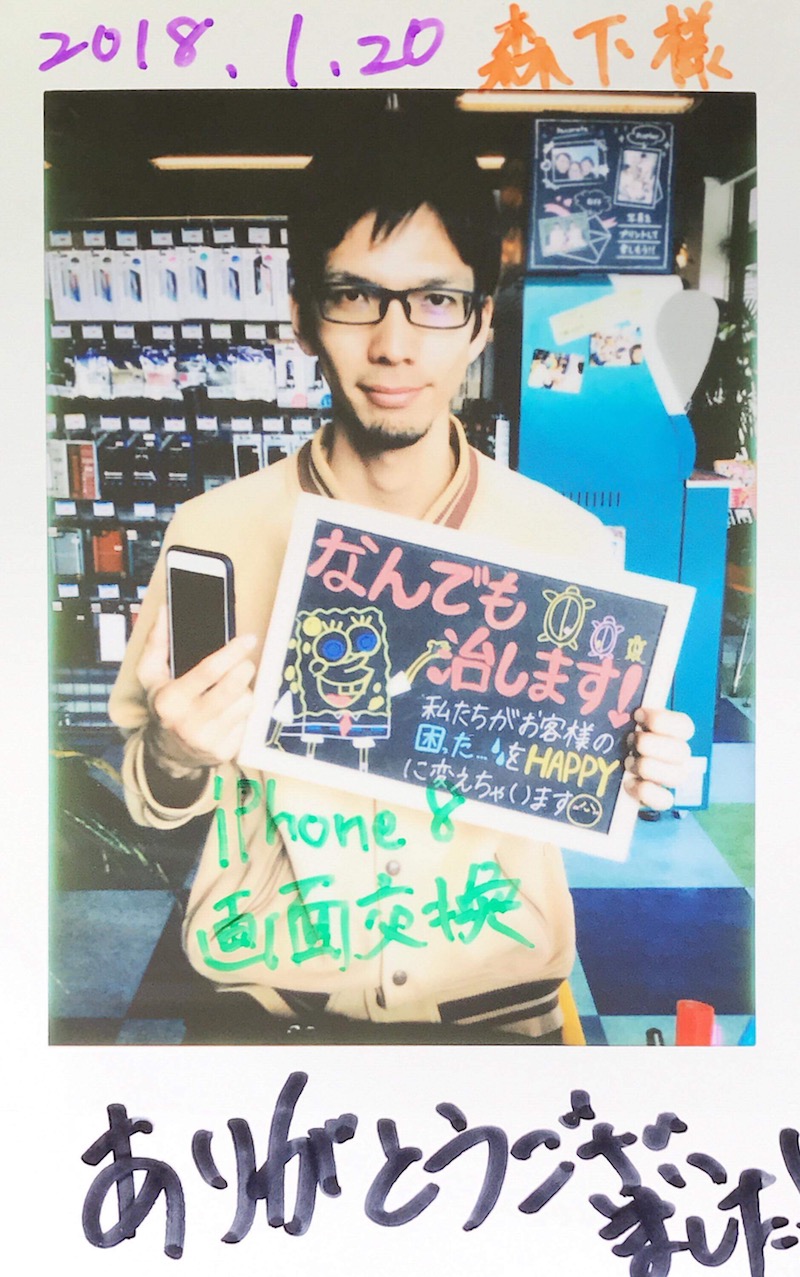 2018.1.20 森下様
写真を
プリントして
楽しもう!!
なんでも
治します!
私たちがお客様の
困った...をHAPPY
に変えちゃいます
iPhone 8
画面交換
ありがとうござい
ました!